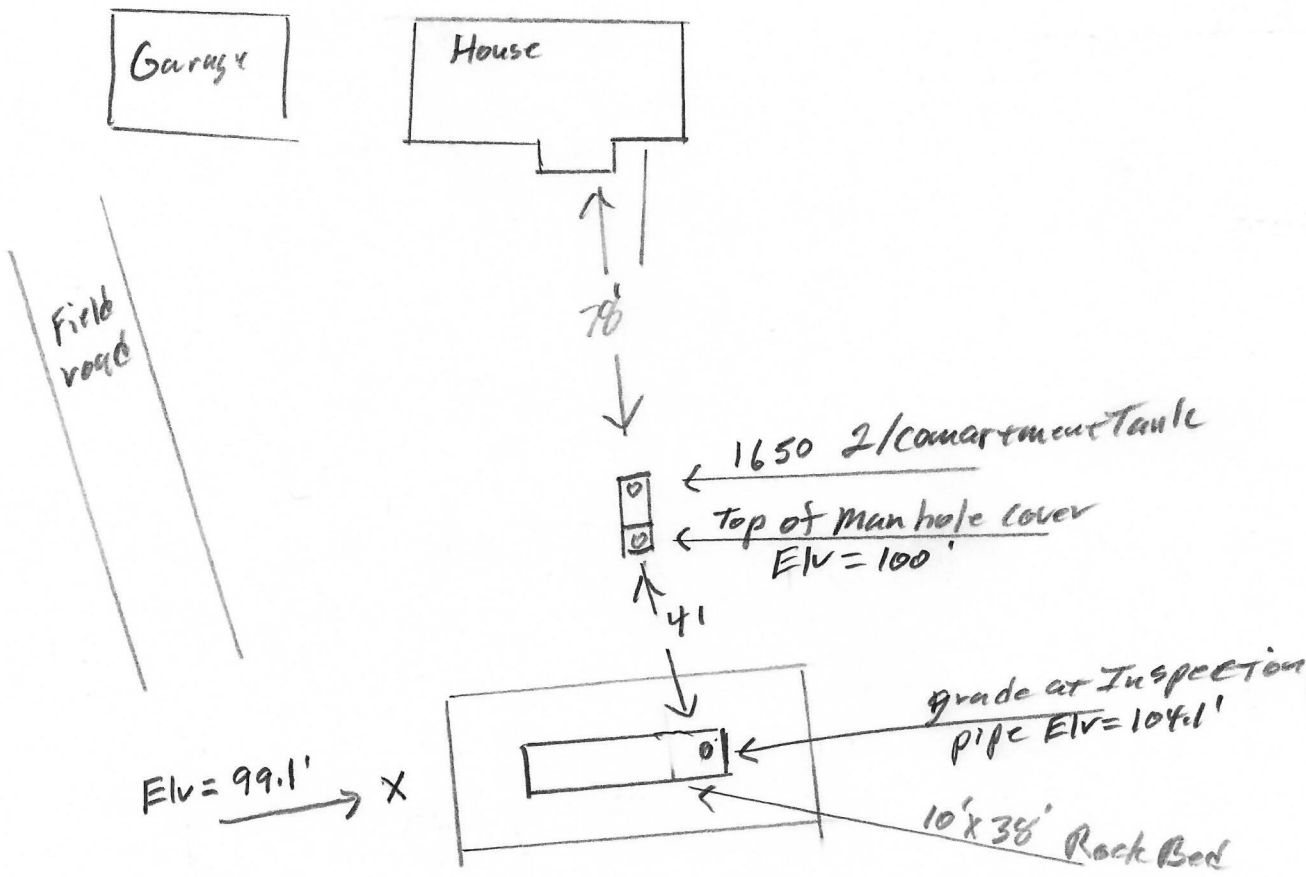 Garage
House
Field
road
78'
1650 2/Comartment Tank
Top of Manhole cover
Elv = 100'
41
grade at Inspection
pipe Elv = 104.1'
Elv = 99.1'
X
10'x38' Rock Bed